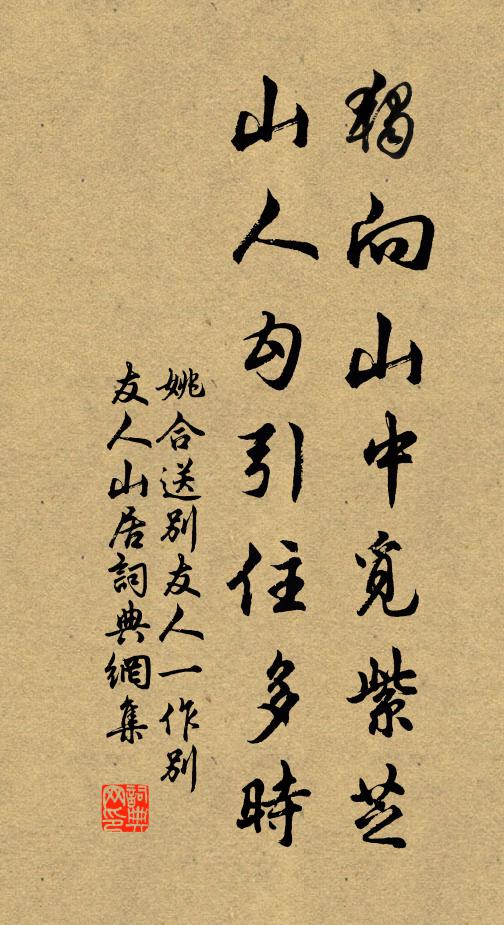 獨向山中覓紫芝
山人勾引住多時
姚合送別友人一作別
友人山居詞典網集
詞典网印